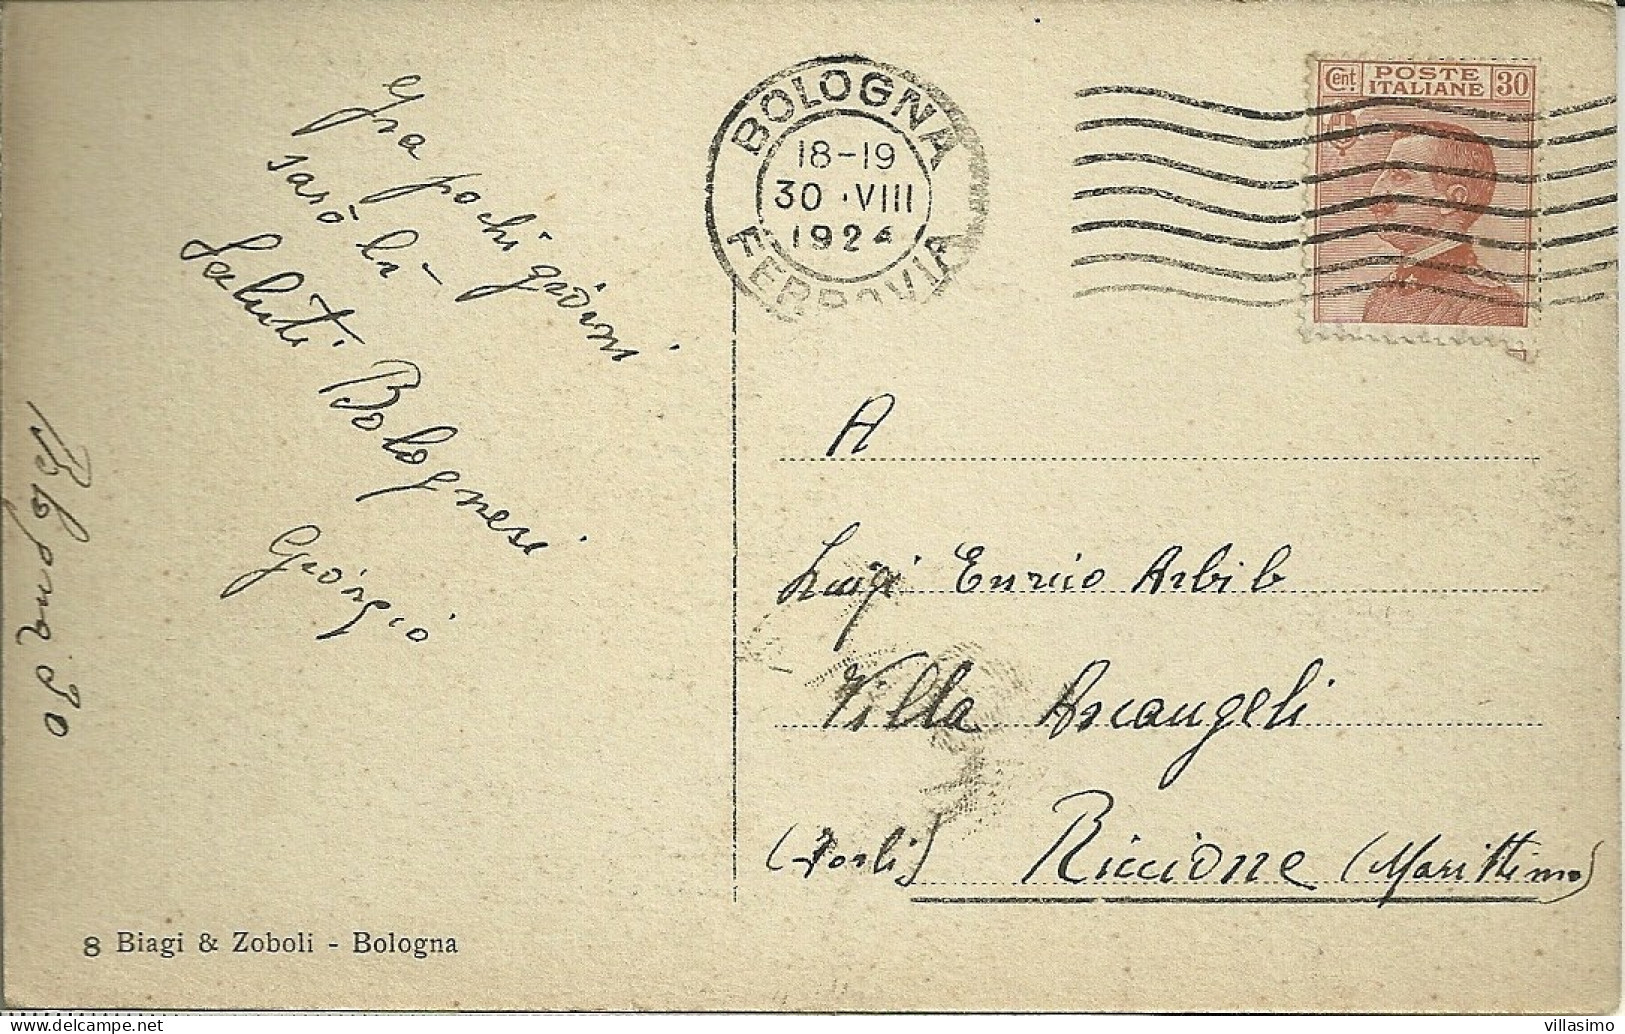 Fra pochi giorni
sarò lì –
Saluti Bolognesi
Giorgio
Bologna. 30
8 Biagi & Zoboli - Bologna
BOLOGNA
18-19
30 . VIII
1924
FERROVIA
Cent. POSTE ITALIANE 30
A
Luigi Enrico Arbib
Villa Arcangeli
(Forlì) Riccione (Marittimo)
delcampe.net
villasimo